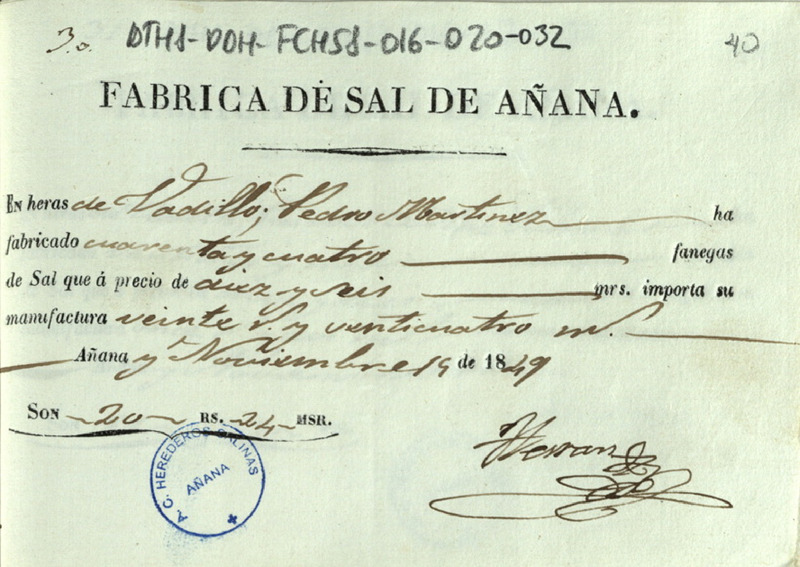 3.o DTHS-DOH-FCHSS-016-020-032 40
FABRICA DE SAL DE AÑANA.
En heras de Vadillo; Pedro Martinez ha
fabricado cuarenta y cuatro fanegas
de Sal que á precio de diez y seis mrs. importa su
manufactura veinte r.s y venticuatro m.s
Añana y Noviembre 19 de 1849
Son 20 RS. 24 MSR.
A. C. HEREDEROS SALINAS
AÑANA